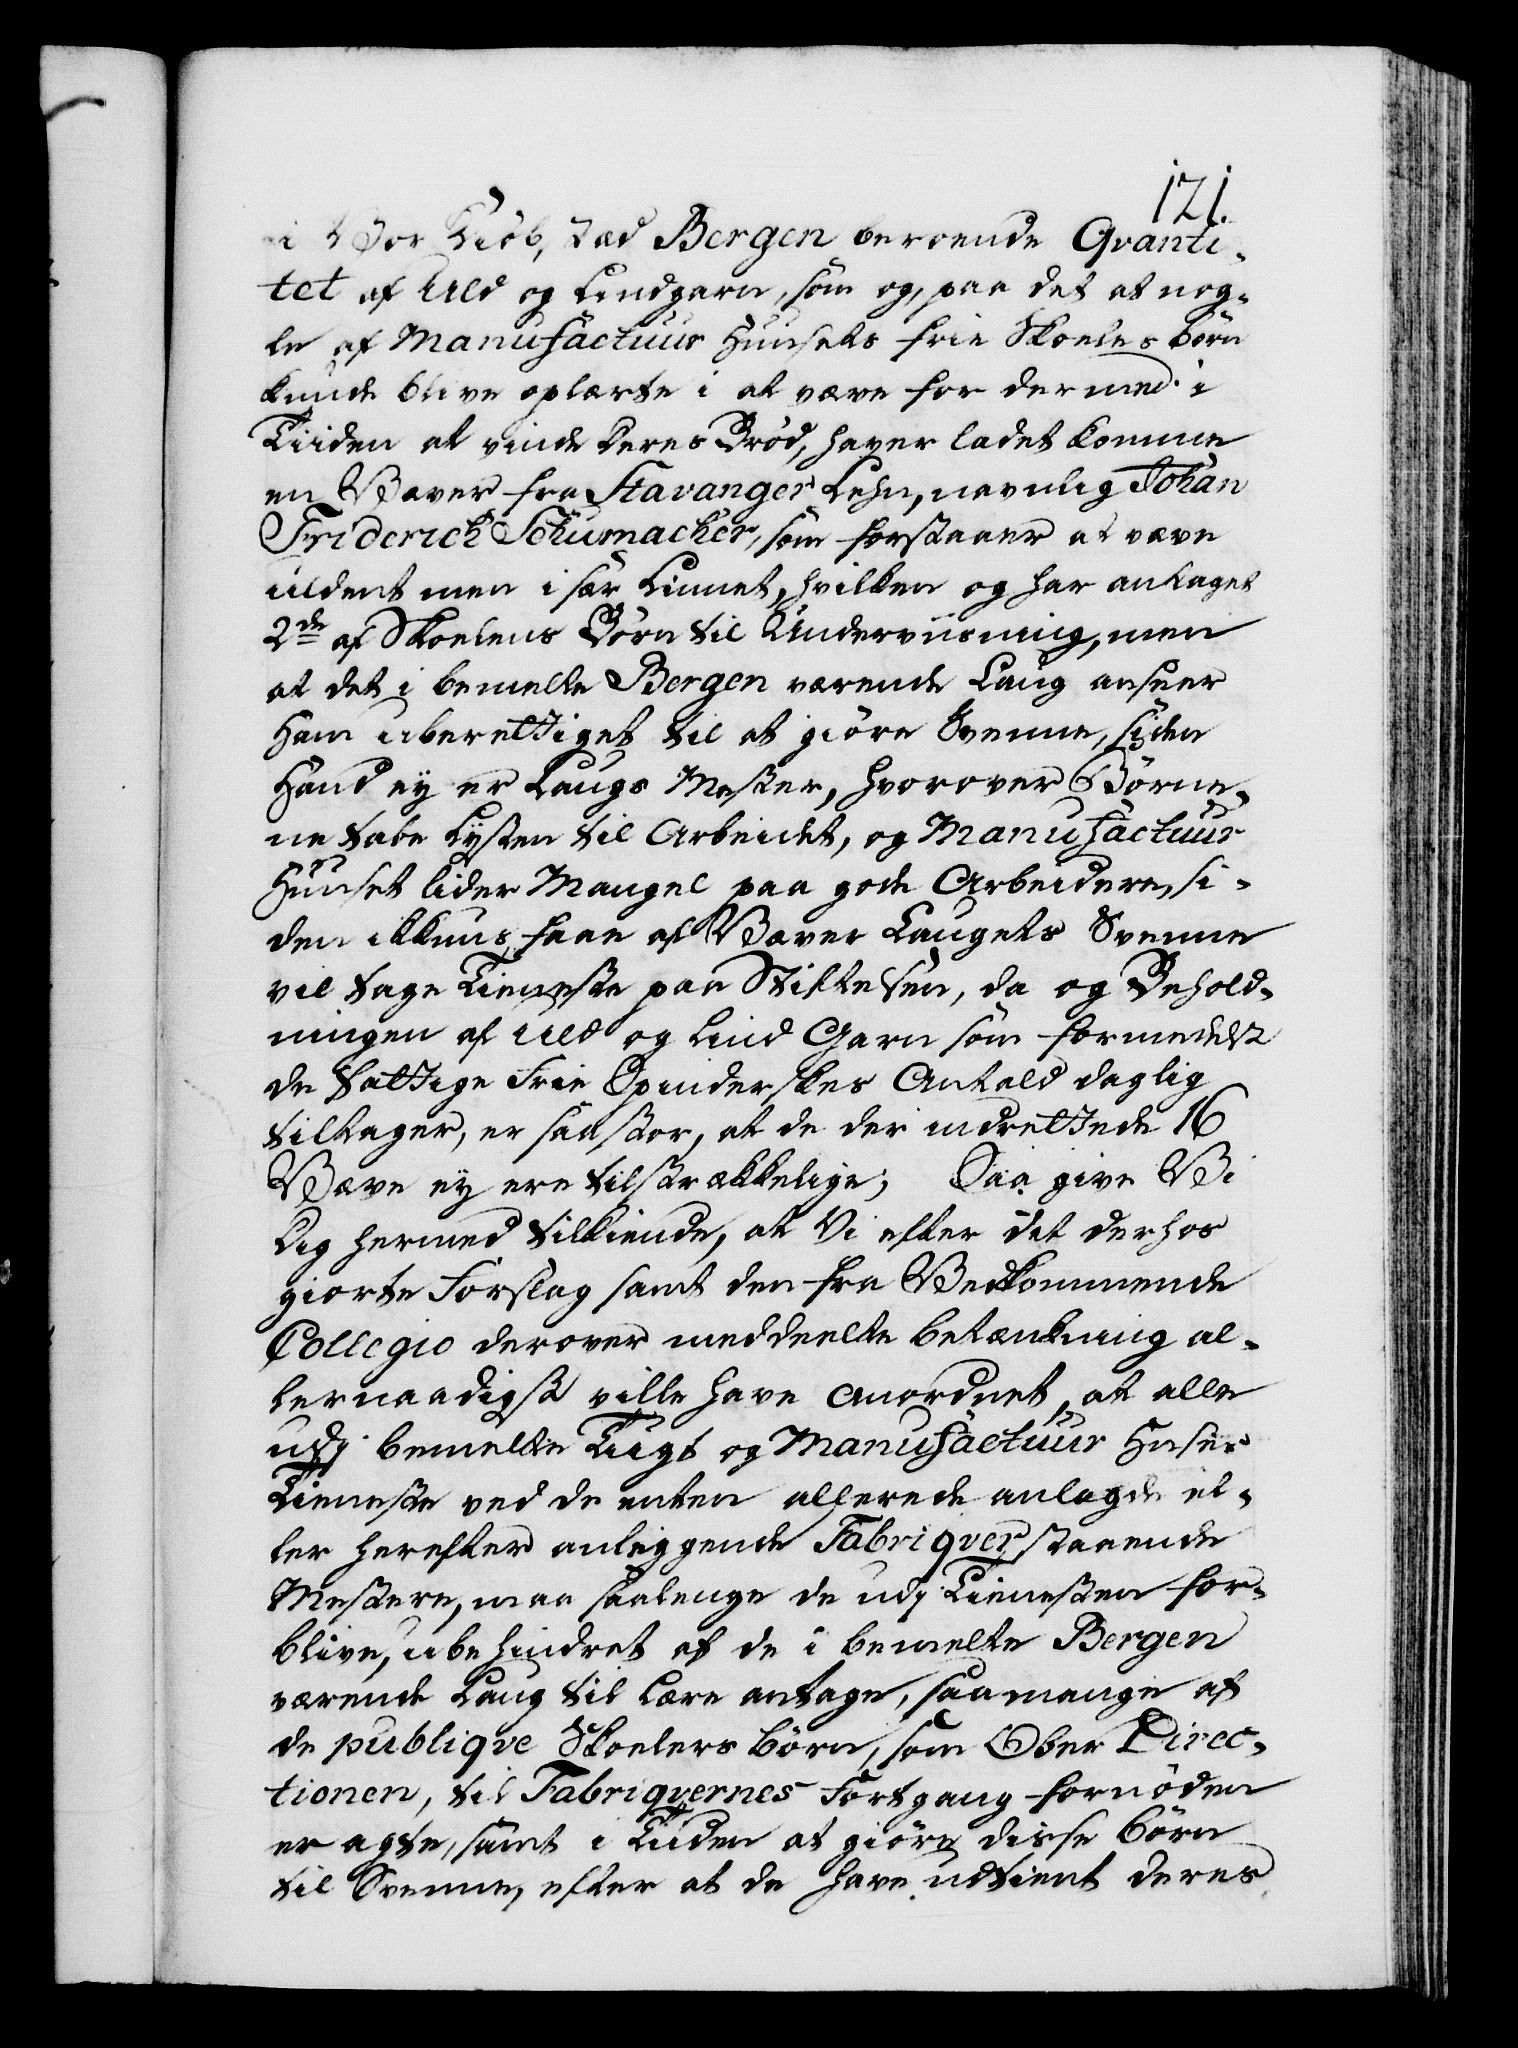 121.
i Vor Kiöbstæd Bergen beroende Qvanti-
tet af Uld og Lindgarn, som og, paa det at nog-
le af Manufactuur Huusets frie Skoeles börn
kunde blive oplærte i at væve for dermed i
Tiiden at vinde deres Bröd, haver ladet komme
en Væver fra Stavanger Lehn, navnlig Johan
Friderich Schumacher, som forstaaer at væve
uldent men i sær Linnet, hvilken og har antaget
2de af Skoelens Börn til Underviisning, men
at det i bemelte Bergen værende Laug anseer
Ham uberettiget til at giöre Svenne, siden
Hand ey er Laugs Mester, hvorover Börne-
ne tabe Lysten til Arbeidet, og Manufactuur
Huuset lider Mangel paa gode Arbeidere, si-
den ikkuns faae af Væver Laugets Svenne
vil tage Tieneste paa Stiftelsen, da og Behold-
ningen af Uld og Lind Garn som formedelst
de fattige Frie Spinderskes Antald daglig
tiltager, er saa stor, at de der indrettede 16
Væve ey ere tilstrækkelige; Saa give Vi
Dig hermed tilkiende, at Vi efter det derhos
giorte Forslag samt den fra Vedkommende
Collegio derover meddeelte betænkning al-
lernaadigst ville have anordnet, at alle
udj bemelte Tugt og Manufactuur Huses
Tieneste ved de enten allerede anlagde el-
ler herefter anlæggende Fabriqver staaende
Mestere, maa saalenge de udj Tienesten for-
blive, ubehindret af de i bemelte Bergen
værende Laug til Lære antage, saa mange af
de publiqve Skoelers börn, som Ober Direc-
tionen, til Fabriqvernes Fortgang fornöden
er agte, samt i Tiiden at giöre disse börn
til Svenne, efter at de have udtient deres